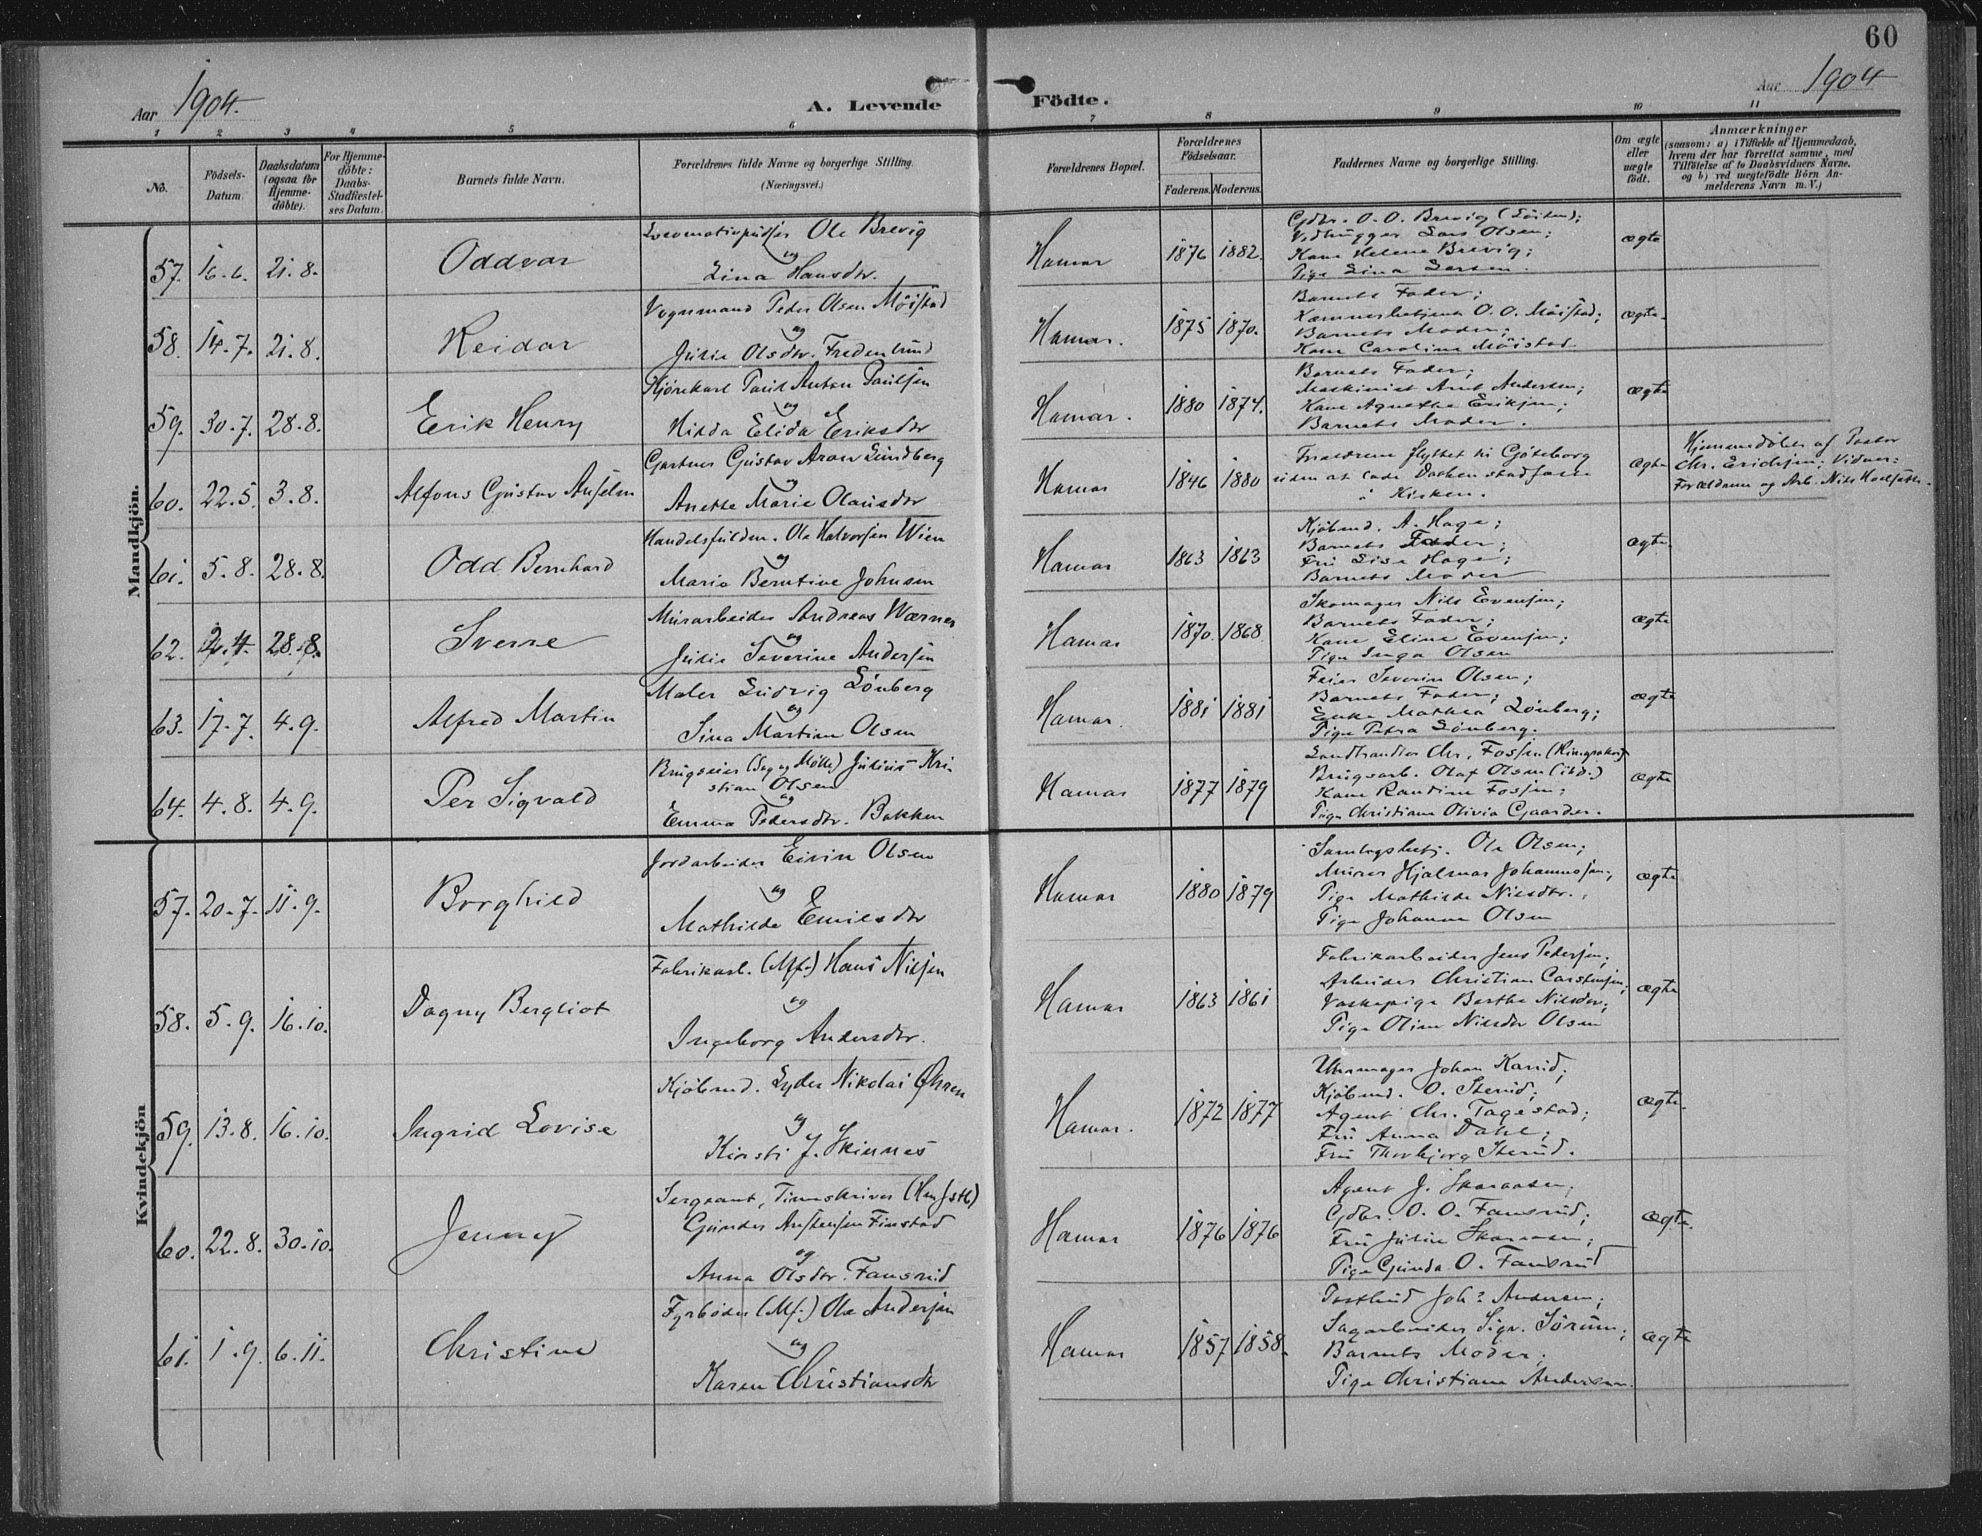 60
Aar 1904.
A. Levende
Födte.
Aar 1904
1 2 3 4 5 6 7 8 9 10 11
No.
Födsels-Datum.
Daabsdatum (ogsaa for Hjemme-döbte).
For Hjemme-döbte: Daabs-Stadfæstel-ses Datum.
Barnets fulde Navn.
Forældrenes fulde Navne og borgerlige Stilling. (Næringsvei.)
Forældrenes Bopæl.
Forældrenes Födselsaar.
Faderens. Moderens.
Faddernes Navne og borgerlige Stilling.
Om ægte eller uægte födt.
Anmærkninger
(saasom: a) i Tilfælde af Hjemmedaab, hvem der har forrettet samme, med Tilföielse af to Daabsvidners Navne, og b) ved uægtefödte Börn An-melderens Navn m. V.)
Mandkjön.
57. 16.6. 21.8. Oddvar
Locomotivpudser Ole Brevig
og
Lina Hansdtr.
Hamar 1876 1882.
Gdbr. O. O. Brevig
Vedhugger Lars Olsen;
Kone Helene Brevig;
Pige Lina Larsen.
ægte
58. 14.7. 21.8. Reidar
Vognmand Peder Olsen Möistad
og
Julie Olsdtr. Fredenlund
Hamar. 1875 1870.
Barnets Fader;
O. O. Möistad;
Barnets Moder;
Kone Caroline Möistad.
ægte.
59. 30.7. 28.8. Erik Henry
Kjörekarl Paul Anton Paulsen
og
Hilda Elida Eriksdtr
Hamar. 1880 1874.
Barnets Fader;
Maskinist Arnt Andersen;
Kone Agnethe Eriksen;
Barnets Moder.
ægte
60. 22.5. 3.8. Alfons Gustav Anselm
Gartner Gustav Aron Lundberg
og
Anette Marie Olausdtr
Hamar 1846 1880
Forældrene flyttet til Göteborg
uden at lade Daaben stadfæste
i Kirken.
ægte
Hjemmedöbt af Pastor
Chr. Erichsen; Vidner:
Forældrene og Arb. Nils
61. 5.8. 28.8. Odd Bernhard
Handelsfuldm. Ole Halvorsen Wien
og
Maria Berntine Johnsen
Hamar 1863 1863
Kjöbmd. A. Hage;
Barnets Fader;
Fru Lise Hage;
Barnets Moder
ægte.
62. 28.8. Sverre
Murarbeider Andreas Wærner
og
Julie Severine Andersen
Hamar 1870. 1868
Skomager Nils Evensen;
Barnets Fader;
Kone Eline Evensen;
Pige Inga Olsen
ægte
63. 17.7. 4.9. Alfred Martin
Maler Ludvig Lönberg
og
Sina Martine Olsen
Hamar. 1881 1881
Feier Severin Olsen;
Barnets Fader;
Enke Mathea Lönberg;
Pige Petra Lönberg.
ægte
64. 4.8. 4.9. Per Sigvald
Brugseier (Sag og Mölle) Julius Kri-
stian Olsen
og
Emma Pedersdtr. Bakken
Hamar 1877 1879
Landhandler Chr. Fossen (Ringsaker)
Brugsarb. Olaf Olsen (ibd.)
Kone Randine Fossen;
Pige Christiane Olivia Gaarder.
ægte
Kvindekjön
57. 20.7. 11.9. Borghild
Jordarbeider Eivin Olsen
og
Mathilde Emilsdtr
Hamar 1880 1879
Ole Olsen;
Murer Hjalmar Johannesen;
Pige Mathilde Nilsdtr.;
Pige Johanne Olsen
ægte
58. 5.9. 16.10. Dagny Bergliot
Fabrikarb. (Mf.) Hans Nilsen
og
Ingeborg Andersdtr.
Hamar 1863 1861
Fabrikarbeider Jens Pedersen;
Arbeider Christian Carstensen;
Vaskepige Berthe Nilsdtr.;
Pige Oline Nilsdtr Olsen
ægte
59. 13.8. 16.10. Ingrid Lovise
Kjöbmd. Lyder Nikolai Öhren
og
Kirsti J. Skinnes
Hamar. 1872 1877
Uhrmager Johan Karud;
Kjöbmd. O. Sterud;
Agent Chr. Tagestad;
Fru Anna Dahl;
Fru Thorbjørg Sterud.
ægte.
60. 22.8. 30.10. Jenny
Sergeant, Timeskriver
Gunder Austensen Finstad
og
Anna Olsdtr. Fansrud
Hamar 1876 1876
Agent J. Skaraasen;
Gdbr. O. O. Fansrud;
Fru Julie Skaraasen;
Pige Gunda O. Fansrud
ægte.
61. 1.9. 6.11. Christine
Fyrböder (Mf.) Ole Andersen
og
Karen Christiansdtr
Hamar 1857 1858.
Postbud Joh. Andersen;
Sagarbeider Sigv. Sörum;
Barnets Moder;
Pige Christiane Andersen.
ægte